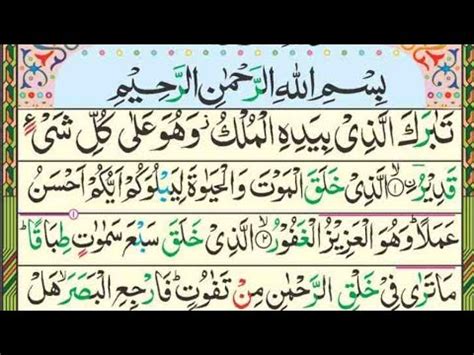 بِسْمِ اللهِ الرَّحْمٰنِ الرَّحِيْمِ
تَبٰرَكَ الَّذِىْ بِيَدِهِ الْمُلْكُ ز وَهُوَ عَلٰى كُلِّ شَىْءٍ
قَدِيْرُ ۨ ۙ﴿۱﴾ الَّذِىْ خَلَقَ الْمَوْتَ وَالْحَيٰوةَ لِيَبْلُوَكُمْ اَيُّكُمْ اَحْسَنُ
عَمَلًا ؕ وَهُوَ الْعَزِيْزُ الْغَفُوْرُ ۙ﴿۲﴾ الَّذِىْ خَلَقَ سَبْعَ سَمٰوٰتٍ طِبَاقًا ؕ
مَا تَرٰى فِىْ خَلْقِ الرَّحْمٰنِ مِنْ تَفٰوُتٍ ؕ فَارْجِعِ الْبَصَرَ ۙ هَلْ